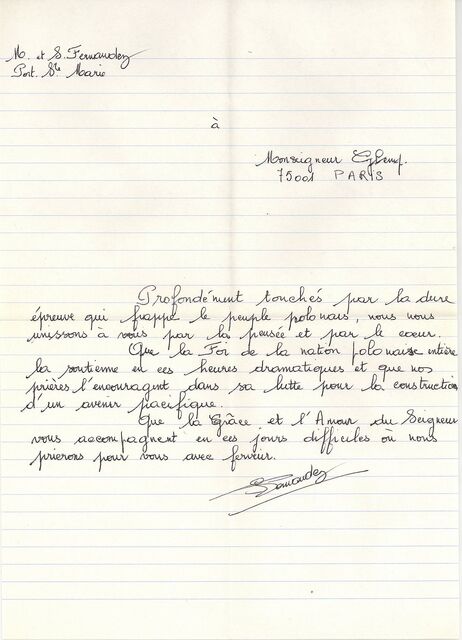 M. et S. Fernandez
Port. Ste Marie
à
Monseigneur Glemp.
75001 PARIS
Profondément touchés par la dure
épreuve qui frappe le peuple polonais, nous nous
unissons à vous par la pensée et par le coeur.
Que la Foi de la nation polonaise entière
la soutienne en ces heures dramatiques et que nos
prières l'encouragent dans sa lutte pour la construction
d'un avenir pacifique.
Que la Grâce et l'Amour du Seigneur
vous accompagnent en ces jours difficiles où nous
prierons pour vous avec ferveur.
Fernandez